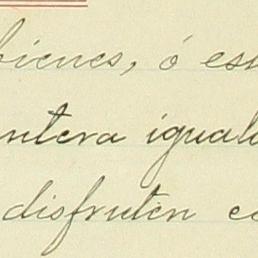 bienes, ó es
ntera igual
disfruten